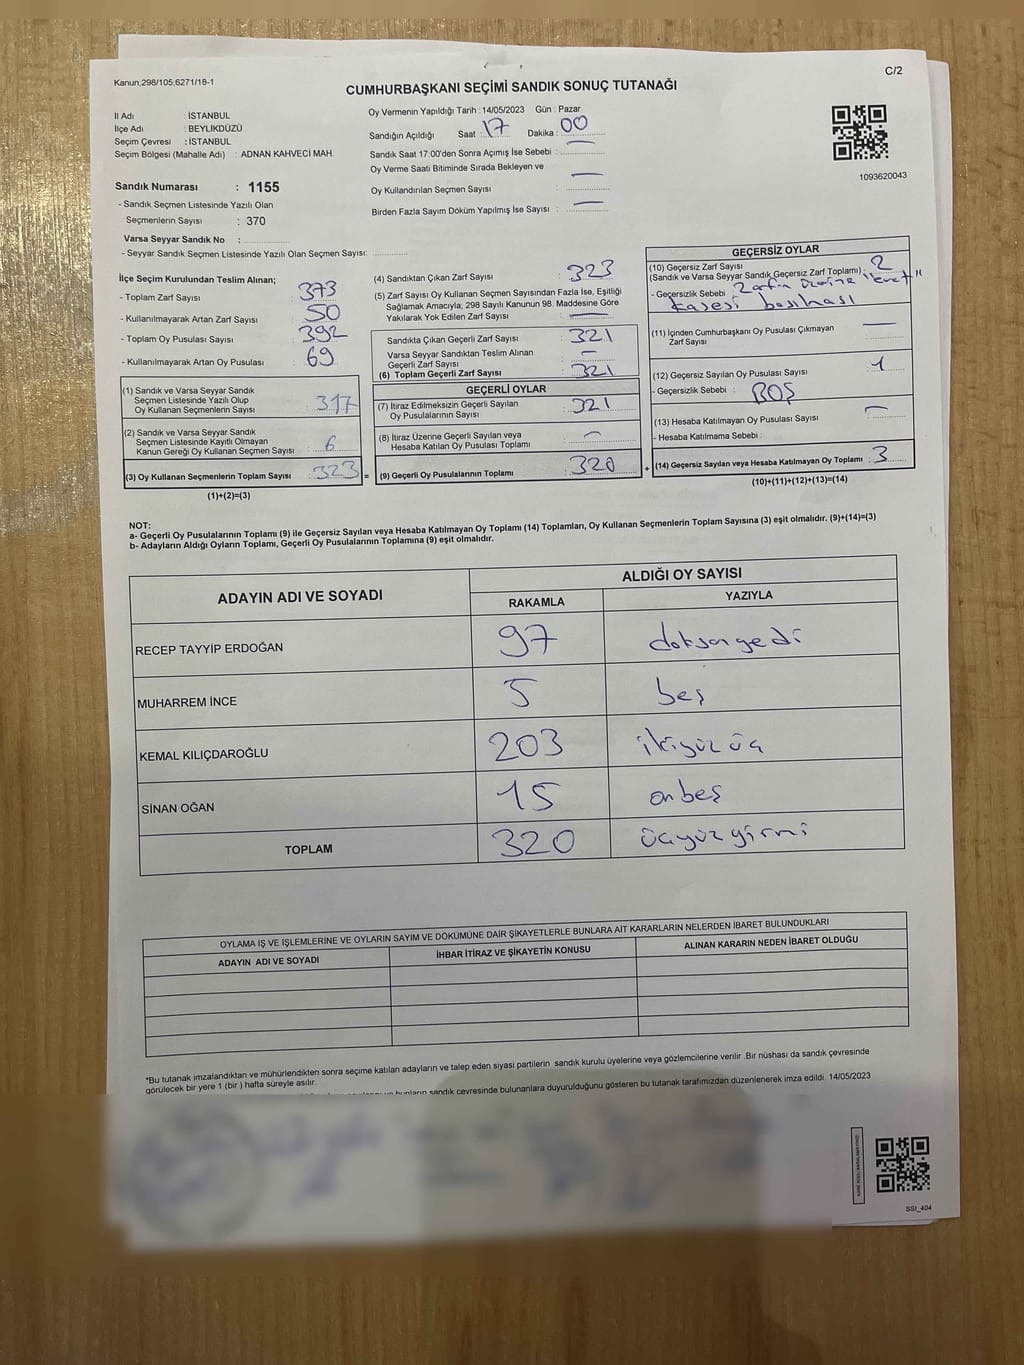 Kanun;298/105,6271/18-1
C/2
CUMHURBAŞKANI SEÇİMİ SANDIK SONUÇ TUTANAĞI
İl Adı : İSTANBUL
İlçe Adı : BEYLİKDÜZÜ
Seçim Çevresi : İSTANBUL
Seçim Bölgesi (Mahalle Adı) : ADNAN KAHVECİ MAH.
Oy Vermenin Yapıldığı Tarih : 14/05/2023 Gün : Pazar
Sandığın Açıldığı Saat : 17 Dakika : 00
Sandık Saat 17:00'den Sonra Açımış İse Sebebi : —
Oy Verme Saati Bitiminde Sırada Bekleyen ve
Oy Kullandırılan Seçmen Sayısı : —
Birden Fazla Sayım Döküm Yapılmış İse Sayısı : —
1093620043
Sandık Numarası : 1155
- Sandık Seçmen Listesinde Yazılı Olan
Seçmenlerin Sayısı : 370
Varsa Seyyar Sandık No :
- Seyyar Sandık Seçmen Listesinde Yazılı Olan Seçmen Sayısı:
İlçe Seçim Kurulundan Teslim Alınan;
- Toplam Zarf Sayısı : 373
- Kullanılmayarak Artan Zarf Sayısı : 50
- Toplam Oy Pusulası Sayısı : 392
- Kullanılmayarak Artan Oy Pusulası : 69
(1) Sandık ve Varsa Seyyar Sandık
Seçmen Listesinde Yazılı Olup
Oy Kullanan Seçmenlerin Sayısı : 317
(2) Sandık ve Varsa Seyyar Sandık
Seçmen Listesinde Kayıtlı Olmayan
Kanun Gereği Oy Kullanan Seçmen Sayısı : 6
(3) Oy Kullanan Seçmenlerin Toplam Sayısı : 323 =
(1)+(2)=(3)
(4) Sandıktan Çıkan Zarf Sayısı : 323
(5) Zarf Sayısı Oy Kullanan Seçmen Sayısından Fazla İse, Eşitliği
Sağlamak Amacıyla, 298 Sayılı Kanunun 98. Maddesine Göre
Yakılarak Yok Edilen Zarf Sayısı : —
Sandıkta Çıkan Geçerli Zarf Sayısı : 321
Varsa Seyyar Sandıktan Teslim Alınan
Geçerli Zarf Sayısı : —
(6) Toplam Geçerli Zarf Sayısı : 321
GEÇERLİ OYLAR
(7) İtiraz Edilmeksizin Geçerli Sayılan
Oy Pusulalarının Sayısı : 321
(8) İtiraz Üzerine Geçerli Sayılan veya
Hesaba Katılan Oy Pusulası Toplamı : —
(9) Geçerli Oy Pusulalarının Toplamı : 320 +
GEÇERSİZ OYLAR
(10) Geçersiz Zarf Sayısı
(Sandık ve Varsa Seyyar Sandık Geçersiz Zarf Toplamı) : 2
- Geçersizlik Sebebi : Zarfın üzerine "evet"
kaşesi basılması
(11) İçinden Cumhurbaşkanı Oy Pusulası Çıkmayan
Zarf Sayısı : —
(12) Geçersiz Sayılan Oy Pusulası Sayısı : 1
- Geçersizlik Sebebi : BOŞ
(13) Hesaba Katılmayan Oy Pusulası Sayısı : —
- Hesaba Katılmama Sebebi :
(14) Geçersiz Sayılan veya Hesaba Katılmayan Oy Toplamı : 3
(10)+(11)+(12)+(13)=(14)
NOT:
a- Geçerli Oy Pusulalarının Toplamı (9) ile Geçersiz Sayılan veya Hesaba Katılmayan Oy Toplamı (14) Toplamları, Oy Kullanan Seçmenlerin Toplam Sayısına (3) eşit olmalıdır. (9)+(14)=(3)
b- Adayların Aldığı Oyların Toplamı, Geçerli Oy Pusulalarının Toplamına (9) eşit olmalıdır.
ADAYIN ADI VE SOYADI
ALDIĞI OY SAYISI
RAKAMLA YAZIYLA
RECEP TAYYİP ERDOĞAN 97 doksanyedi
MUHARREM İNCE 5 beş
KEMAL KILIÇDAROĞLU 203 ikiyüz üç
SİNAN OĞAN 15 onbeş
TOPLAM 320 üçyüzyirmi
OYLAMA İŞ VE İŞLEMLERİNE VE OYLARIN SAYIM VE DÖKÜMÜNE DAİR ŞİKAYETLERLE BUNLARA AİT KARARLARIN NELERDEN İBARET BULUNDUKLARI
ADAYIN ADI VE SOYADI İHBAR İTİRAZ VE ŞİKAYETİN KONUSU ALINAN KARARIN NEDEN İBARET OLDUĞU
*Bu tutanak imzalandıktan ve mühürlendikten sonra seçime katılan adayların ve talep eden siyasi partilerin sandık kurulu üyelerine veya gözlemcilerine verilir .Bir nüshası da sandık çevresinde
görülecek bir yere 1 (bir ) hafta süreyle asılır.
bunların sandık çevresinde bulunanlara duyurulduğunu gösteren bu tutanak tarafımızdan düzenlenerek imza edildi. 14/05/2023
SSI_404